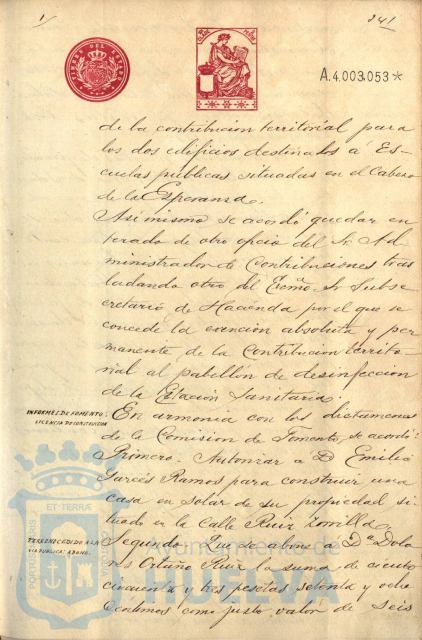 1/
241
TIMBRE DEL ESTADO
A.4.003.053*
de la contribucion territorial para
los dos edificios destinados á Es-
cuelas publicas situadas en el Cabezo
de la Esperanza.
Asimismo se acordó quedar en
terado de otro oficio del Sr. Ad
ministrador de Contribuciones tras
ladando otro del Excmo. Sr. Subse
cretario de Hacienda por el que se
concede la exencion absoluta y per
manente de la Contribucion territo-
rial al pabellon de desinfeccion
de la Estación Sanitaria.
INFORMES DE FOMENTO.
LICENCIA DE CONSTRUCCION
En armonia con los dictamenes
de la Comision de Fomento, se acordó:
Primero. Autorizar a D. Emilio
Garcés Ramos para construir una
casa en solar de su propiedad si-
tuado en la Calle Ruiz Zorrilla.
TERRENO CEDIDO A LA
VIA PUBLICA: ABONO.
Segundo. Que se abone a Dª Dolo
res Ortuño Ruiz la suma de ciento
cincuenta y tres pesetas setenta y ocho
centimos como justo valor de seis
PORTUS MARIS ET TERRÆ
Ayuntamiento de
HUELVA